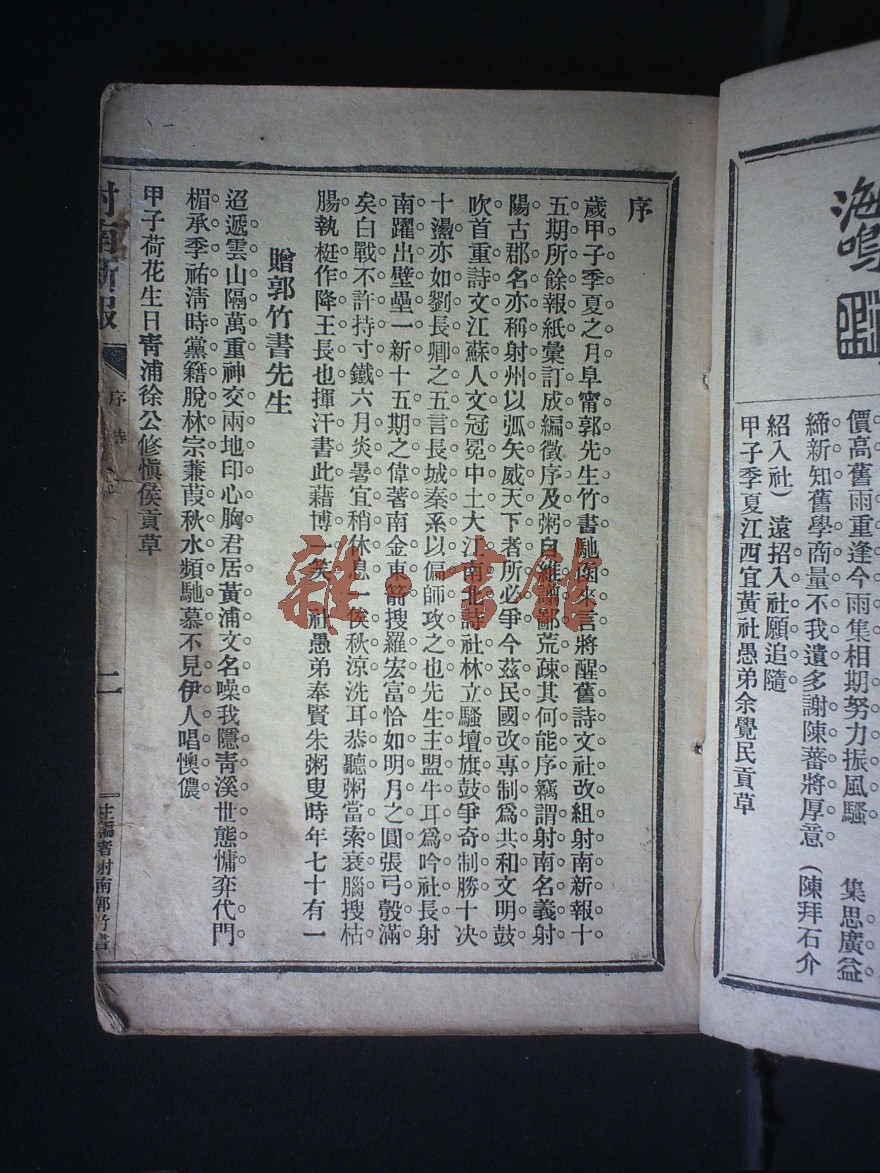 海鳴
價高舊雨重逢今雨集相期努力振風騷　集思廣益
締新知舊學商量不我遺多謝陳蕃將厚意（陳拜石介
紹入社）遠招入社願追隨
甲子季夏江西宜黃社愚弟余覺民貢草
序
歲甲子季夏之月阜甯郭先生竹書馳函來言將醒舊詩文社改組射南新報十
五期所餘報紙彙訂成編徵序及粥自維譾鄙荒疎其何能序竊謂射南名義射
陽古郡名亦稱射州以弧矢威天下者所必爭今茲民國改專制爲共和文明鼓
吹首重詩文江蘇人文冠冕中土大江南北詩社林立騷壇旗鼓爭奇制勝十决
十盪亦如劉長卿之五言長城秦系以偏師攻之也先生主盟牛耳爲吟社長射
南躍出壁壘一新十五期之偉著南金東箭搜羅宏富恰如明月之圓張弓彀滿
矣白戰不許持寸鐵六月炎暑宜稍休息一俟秋涼洗耳恭聽粥當索衰腦搜枯
腸執梃作降王長也揮汗書此藉博一笑　社愚弟奉賢朱粥叟時年七十有一
贈郭竹書先生
迢遞雲山隔萬重神交兩地印心胸君居黃浦文名噪我隱靑溪世態慵弈代門
楣承季祐淸時黨籍脫林宗蒹葭秋水頻馳慕不見伊人唱懊儂
甲子荷花生日靑浦徐公修愼侯貢草
射南新報
序
二
主編者射南郭竹書
雜·書館